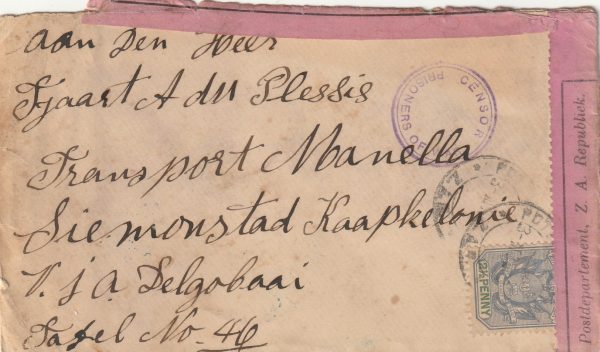 Aan Den Heer
Tjaart A du Plessis
Transport Manella
Siemonstad Kaapkelonie
V. j a. Delgobaai
Tafel No. 46
CENSOR
PRISONERS OF
PENNY
Postdepartement, Z. A. Republiek.